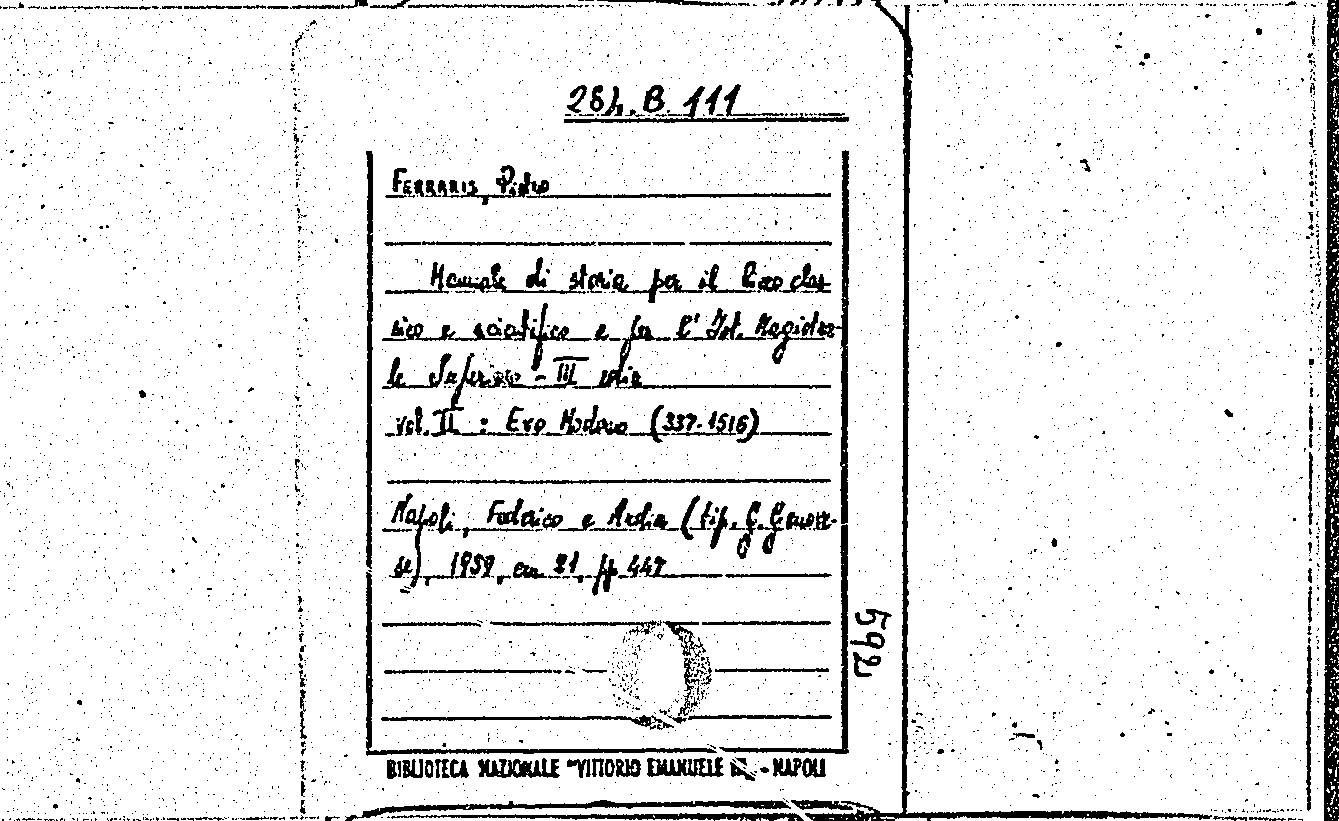 284. B 111
FERRARIS, Pietro
Manuale di storia per il Liceo clas
sico e scientifico e per l' Ist. Magistra-
le Superiore - III ediz
vol. II : Evo Moderno (337-1516)
Napoli, Federico e Ardia (tip. G. Genove-
se), 1939, cm 21, pp 447
592
BIBLIOTECA NAZIONALE "VITTORIO EMANUELE - NAPOLI